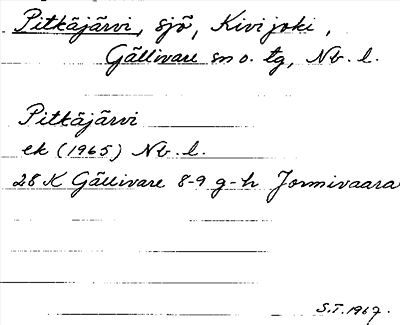 Pitkäjärvi, sjö, Kivijoki,
Gällivare sn o. tg, Nb. l.
Pitkäjärvi
ek (1965) Nb. l.
28 K Gällivare 8-9 g-h Jormivaara
S.T. 1967.